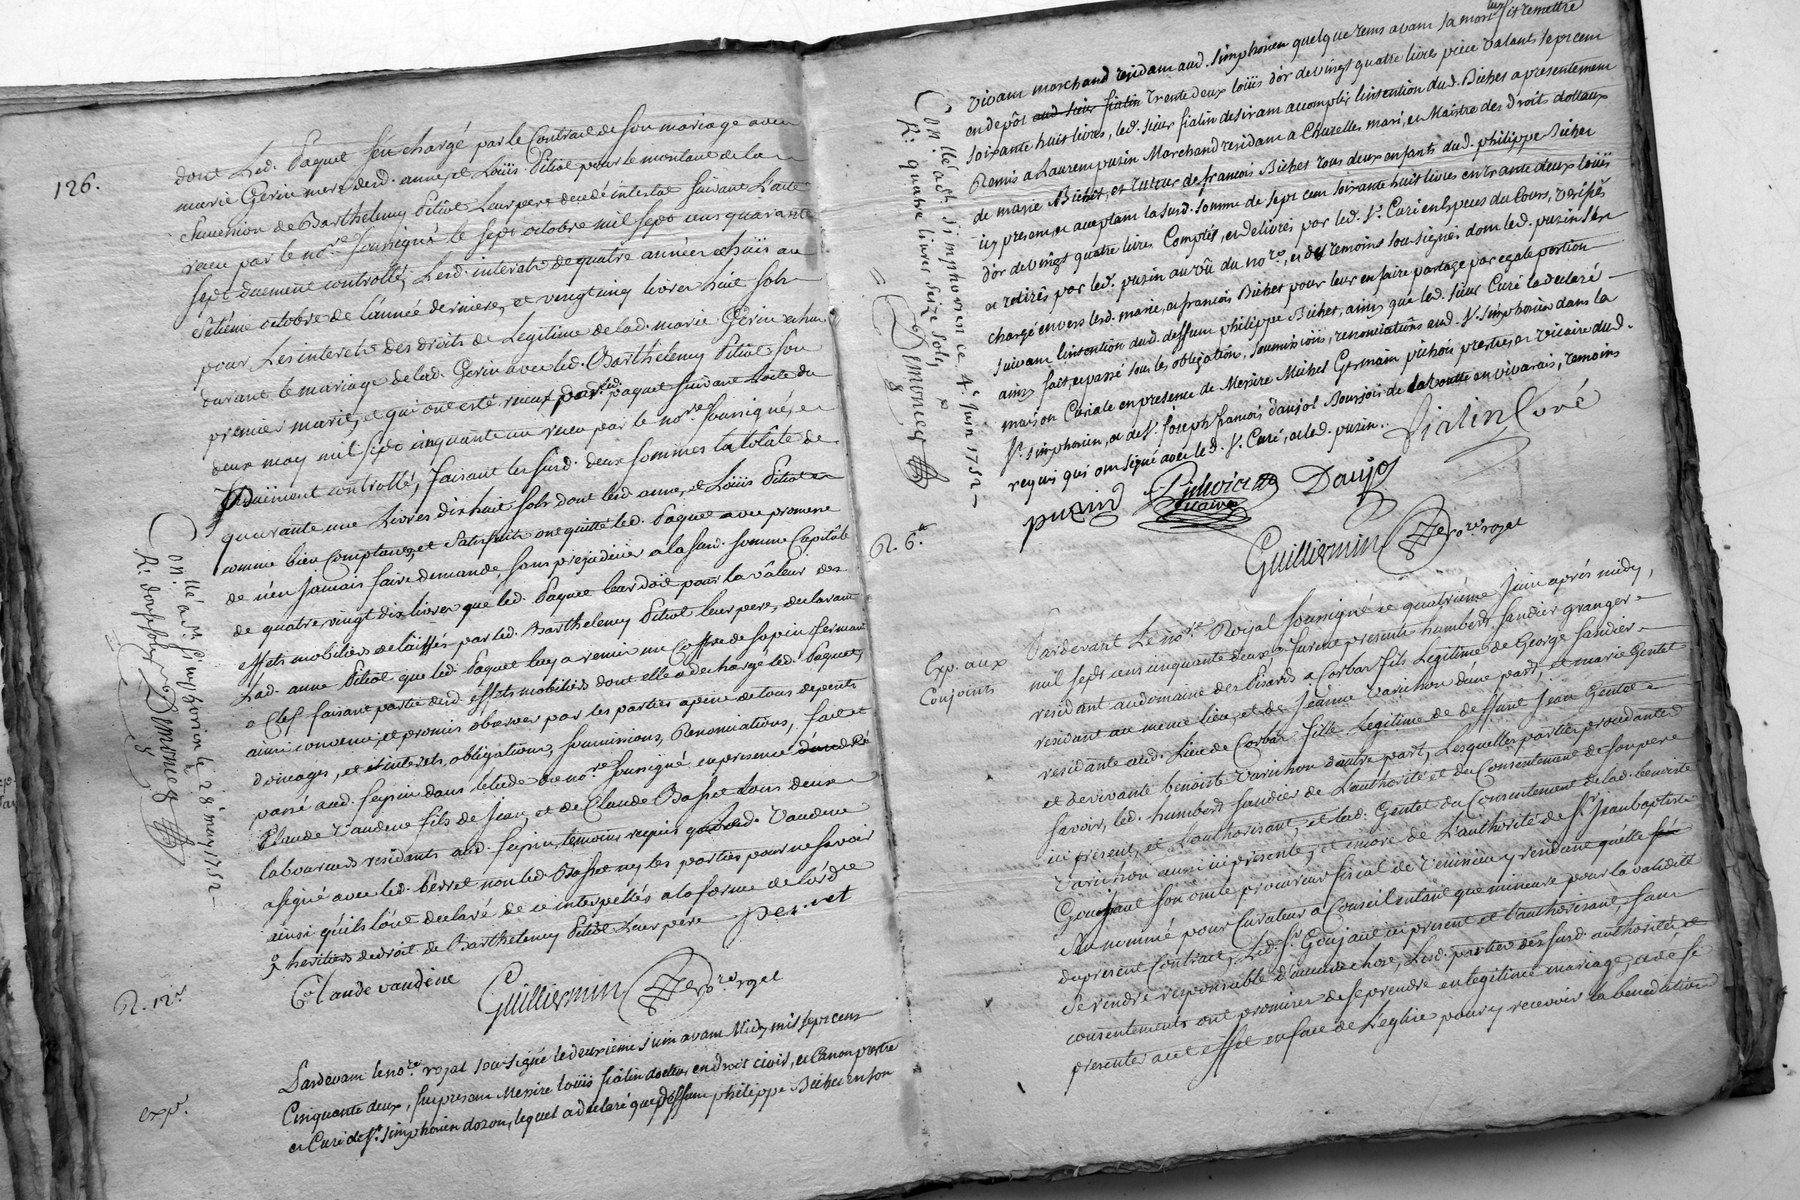 126.
dont Led. Paquet fut chargé par le Contrat de son mariage avec
marie Gerin mere desd. anne, et Loüis Pitiot pour le montant de la
Succession de Barthelemy Pitiot Leur pere decedé intestat suivant L'acte
receu par le no.re soussigné le sept octobre mil sept cens quarante
sept duement controllé, Lesd. interets de quatre années echuës au
setiéme octobre de L'année derniere, et vingt cinq livres huit sols
pour Les interets des droits de Legitime de lad. marie Gerin echus
durant le mariage de lad. Gerin avec led. Barthelemy Pitiot son
premier marit, et qui ont esté receus par led. paquet suivant L'acte du
deux may mil sept cinquante un receu par le no.re soussigné, et
duëment controllé, faisant les susd. deux sommes la totale de
quarante une Livres dix huit sols dont lesd. anne, et Loüis Pitiot
comme bien comptants, et satisfaits ont quitté led. Paquet avec promesse
de n'en jamais faire demande, sans prejudicier a la susd. somme Capitale
de quatre vingt dix livres que led. Paquet leur doit pour la valeur des
effets mobiliers delaissés par led. Barthelemy Pitiot leur pere, declarant
Lad. anne Pitiot que led. Paquet luy a remis un Coffre de sapin fermant
a Clef faisant partie desd. effets mobiliers dont elle a dechargé led. Paquet,
ainsi convenu, et promis observer par les parties a peine de tous depents
domages, et interets, obligations, soumissions, Renonciations, fait et
passé aud. Feysin dans l'etude du no.re soussigné en presence d'andré
Claude Vaudene fils de Jean, et de Claude Basset tous deux
laboureurs residants aud. Feysin, temoins requis led. Vaudene
a signé avec led. non led. Basset ny les parties pour ne savoir
ainsi qu'ils l'ont declaré de ce interpellés a la forme de lord.ce
heritiers de droit de Barthelemy Pitiot Leur pere
perret
Claude vaudéne
Guilliermin no.re royal
Con.llé a St. Simphorien le 28e may 1752
R. douze sols
Dimonceg
R. 12s
exp.
Pardevant le no.re royal soussigné le deuxieme juin avant Midy mil sept cens
Cinquante deux, fut present Messire loüis fialin docteur en droit civil, et Canon pretre
et Curé de St. simphorien dozon, lequel a declaré que deffunt philippe Bichet en son
vivant marchand residant aud. simphorien quelque tems avant sa mort luy fit remettre
en depôt aud. sieur fialin trente deux loüis d'or de vingt quatre livres piece valants sept cent
soixante huit livres, led. sieur fialin desirant accomplir l'intention dud. Bichet a presentement
Remis a Laurent purin Marchand residant a Chuzelles mari, et Maistre des droits dottaux
de marie Bichet, et tuteur de francois Bichet tous deux enfants dud. philippe Bichet
icy present, et acceptant la susd. somme de sept cent soixante huit livres en trante deux loüis
d'or de vingt quatre livres Comptés, et delivrés par led. Sr. Curé en Especes du cours, verifiés
et retirés par led. purin au vû du no.re, et des temoins soussignés dont led. purin s'est
chargé envers lesd. marie, et francois Bichet pour leur en faire partage par egale portion
suivant l'intention dud. deffunt philippe Bichet, ainsi que led. sieur Curé la declaré
ainsi fait, et passé sous les obligations, soumissions, renonciations aud. St. simphorien dans la
maison Curiale en presence de Messire Michel Germain pichoit prestre, et vicaire dud.
St. simphorien, et de Sr. joseph francois daujol Bourjois de La voutte en vivarais, temoins
requis qui ont signé avec led. Sr. Curé, et led. purin.
fialin Curé
purin
vicaire
Daujol
Guilliermin no.re royal
Con.llé a St. Simphorien ce 4e juin 1752
R. quatre livres seize sols
Dimonceg
R. 6s
Exp. aux
Conjoints
Pardevant Le no.re Royal soussigné ce quatriéme Juin aprés midy,
mil sept cens cinquante deux furent presents humbert faudier granger
residant au domaine des Pisards a Corbas fils Legitime de George faudier
residant au meme lieu, et de Jeanne Varichon d'une part, et marie Gentet
residante aud. Lieu de Corbas fille Legitime de deffunt Jean Gentet
et de vivante benoiste Varichon d'autre part, Lesquelles parties procedantes
savoir, led. humbert faudier de L'authorité et du Consentement de son pere
icy present, et L'authorisant, et lad. Gentet du Consentement de lad. benoiste
Varichon aussi icy presente, et encore de L'authorité de Sr. Jean baptiste
Goujaut son oncle procureur fiscal de Venissieu y residant qu'elle
a nommé pour Curateur a Conseil entant que mineure pour la validité
du present Contract, Led. Sr. Goujaut icy present et L'authorisant, sans
se rendre responsable d'aucune chose, Lesd. parties des susd. authorités et
consentements ont promises de se prendre en legitime mariage, et de se
presenter a cet effet en face de L'eglise pour y recevoir la benediction